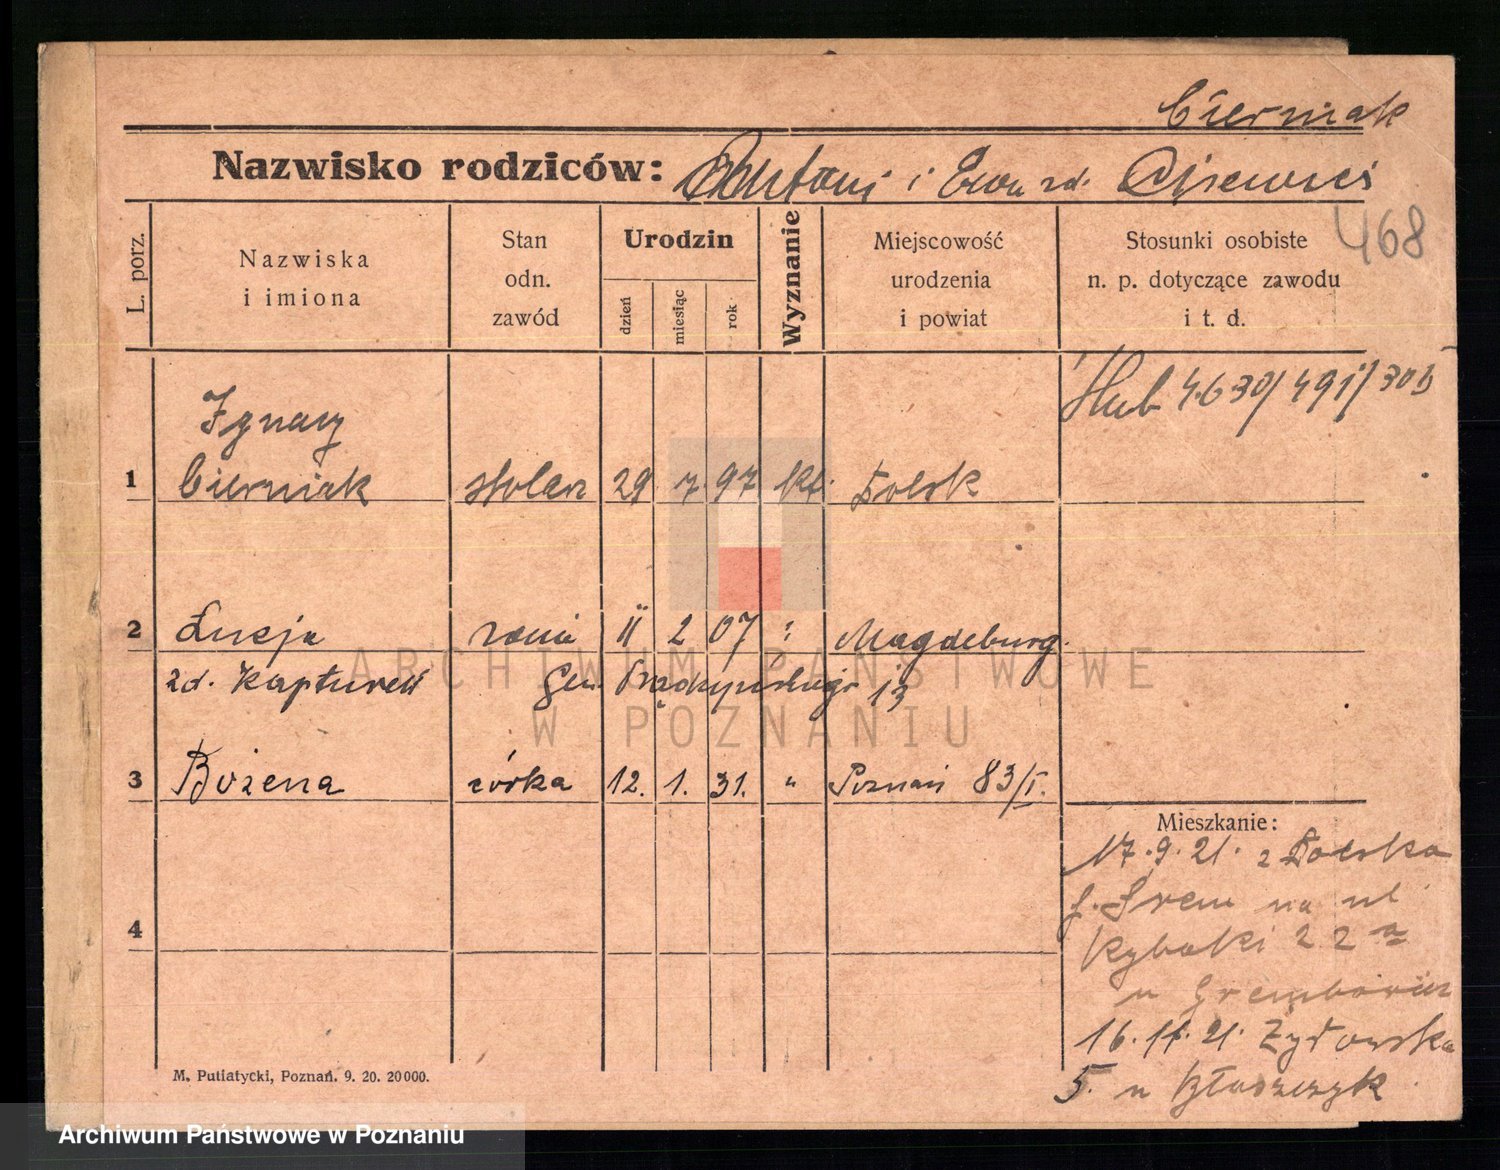 Cierniak
Nazwisko rodziców: Antoni i Ewa zd.
468
L. porz.
Nazwiska
i imiona
Stan
odn.
zawód
Urodzin
dzień
miesiąc
rok
Wyznanie
Miejscowość
urodzenia
i powiat
Stosunki osobiste
n. p. dotyczące zawodu
i t. d.
Ślub 4.6 30/491/30
Ignacy
1 Cierniak stolarz 29 7. 97 kt. Dolsk
2 Łucja żona 11 2 07 " Magdeburg
zd. Kapturek Gen. Prądzyńskiego 13
3 Bożena córka 12. 1. 31. " Poznań 83/I.
4
Mieszkanie:
17.9.21. z Dolska
p. Śrem na ul
Rybaki 22a
u
16.11.21. Żydowska
5. u Błaszczyk
M. Putiatycki, Poznań. 9. 20. 20000.
ARCHIWUM PAŃSTWOWE
W POZNANIU
Archiwum Państwowe w Poznaniu